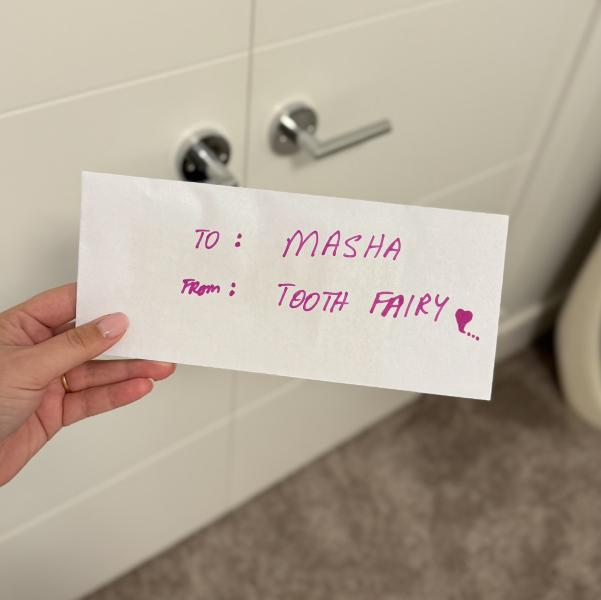 TO : MASHA
From : TOOTH FAIRY